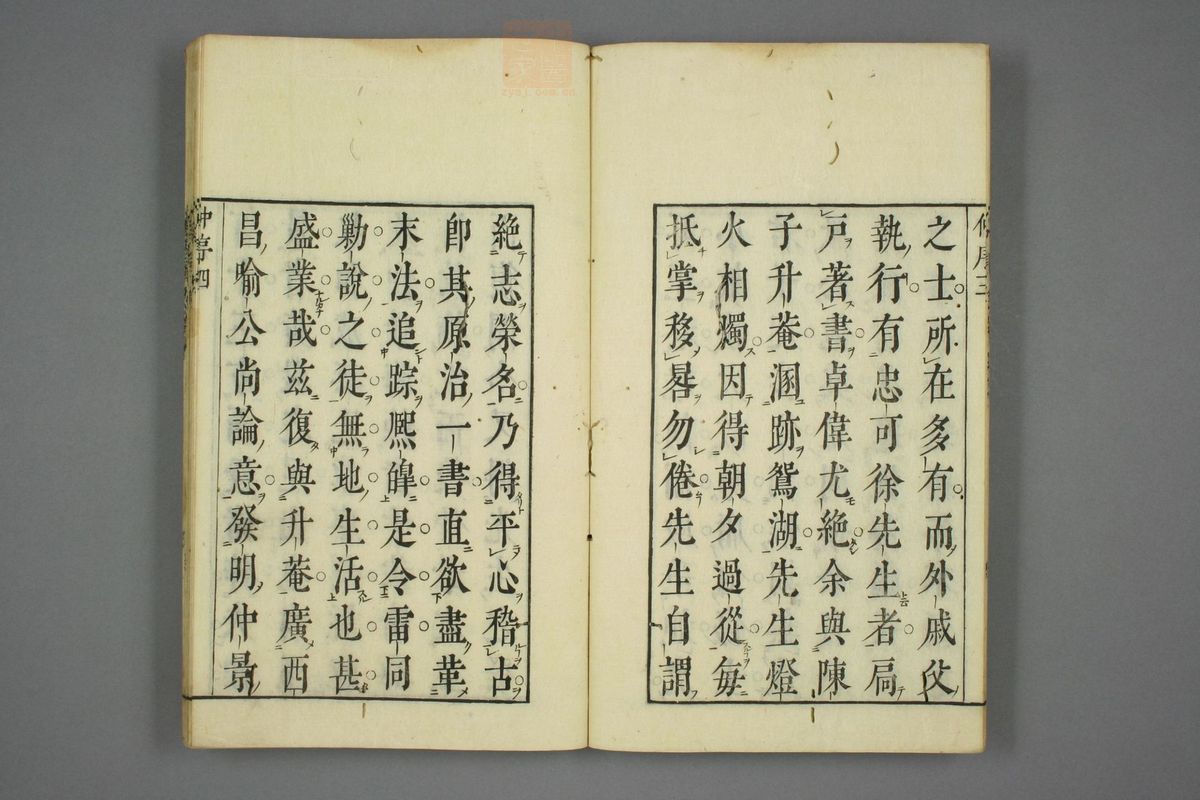 之士所在多有而外戚父
執行有忠可徐先生者扃
戸著書卓偉尤絶余與陳
子升菴溷跡鴛湖先生燈
火相燭因得朝夕過從毎
抵掌移晷勿倦先生自謂
絶志榮名乃得平心稽古
卽其原治一書直欲盡革
末法追踪熈皥是令雷同
勦說之徒無地生活也甚
盛業哉茲復與升菴廣西
昌喩公尚論意發明仲景
仲序四
zysj.com.cn